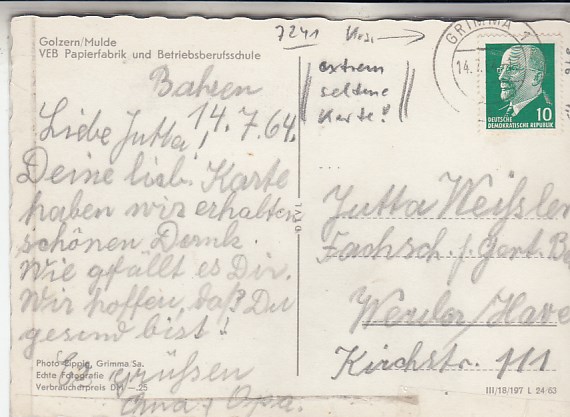 Golzern/Mulde
VEB Papierfabrik und Betriebsberufsschule
7241
extrem
seltene
Karte!
GRIMMA 1
14.7.
10
DEUTSCHE
DEMOKRATISCHE REPUBLIK
Bahren
14.7.64.
Liebe Jutta!
Deine liebe Karte
haben wir erhalten
schönen Dank.
Wie gefällt es Dir.
Wir hoffen, daß Du
gesund bist!
grüßen
Oma + Opa.
Jutta Weißler
Fachsch. f. Gart. B
Werder/Have
Kirchstr. 111
Photo-Lippig, Grimma Sa.
Echte Fotografie
Verbraucherpreis DM —.25
III/18/197 L 24/63